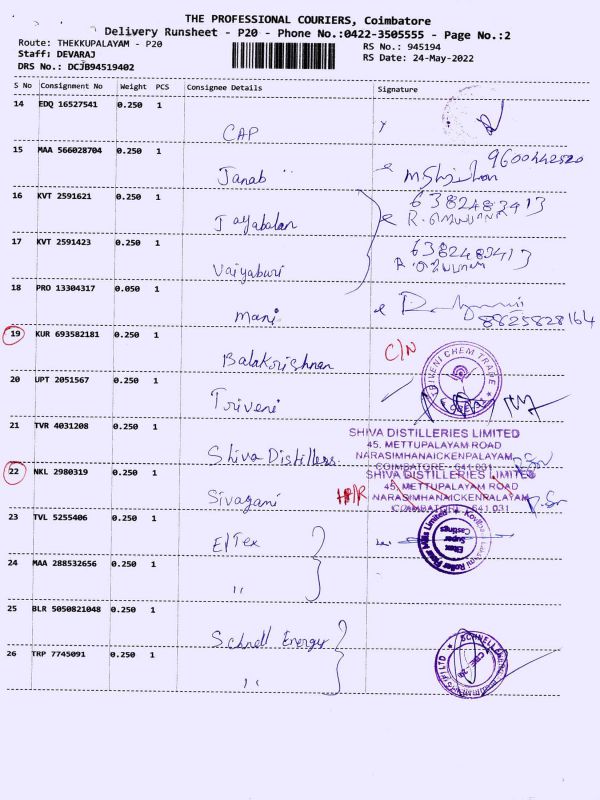 THE PROFESSIONAL COURIERS, Coimbatore
Delivery Runsheet - P20 - Phone No.:0422-3505555 - Page No.:2
Route: THEKKUPALAYAM - P20
RS No.: 945194
Staff: DEVARAJ
RS Date: 24-May-2022
DRS No.: DCJB94519402
S No Consignment No Weight PCS Consignee Details Signature
14 EDQ 16527541 0.250 1
CAP
15 MAA 566028704 0.250 1
9600442520
Janab
16 KVT 2591621 0.250 1
6382483413
Jayabalan
17 KVT 2591423 0.250 1
6382483413
Vaiyaburi
18 PRO 13304317 0.050 1
Mani
8825828164
19 KUR 693582181 0.250 1
C/N
Balakrishnan
20 UPT 2051567 0.250 1
TRIVENI CHEM TRADE
Triveni
21 TVR 4031208 0.250 1
SHIVA DISTILLERIES LIMITED
45, METTUPALAYAM ROAD
NARASIMHANAICKENPALAYAM,
COIMBATORE - 641 031
Shiva Distillers
22 NKL 2980319 0.250 1
SHIVA DISTILLERIES LIMITED
45, METTUPALAYAM ROAD
NARASIMHANAICKENPALAYAM
COIMBATORE - 641 031
Sivagani
23 TVL 5255406 0.250 1
Eltex
Eltex
Super
Castings
Roller Flour Mills Limited
24 MAA 288532656 0.250 1
"
25 BLR 5050821048 0.250 1
Schnell Energy
26 TRP 7745091 0.250 1
"